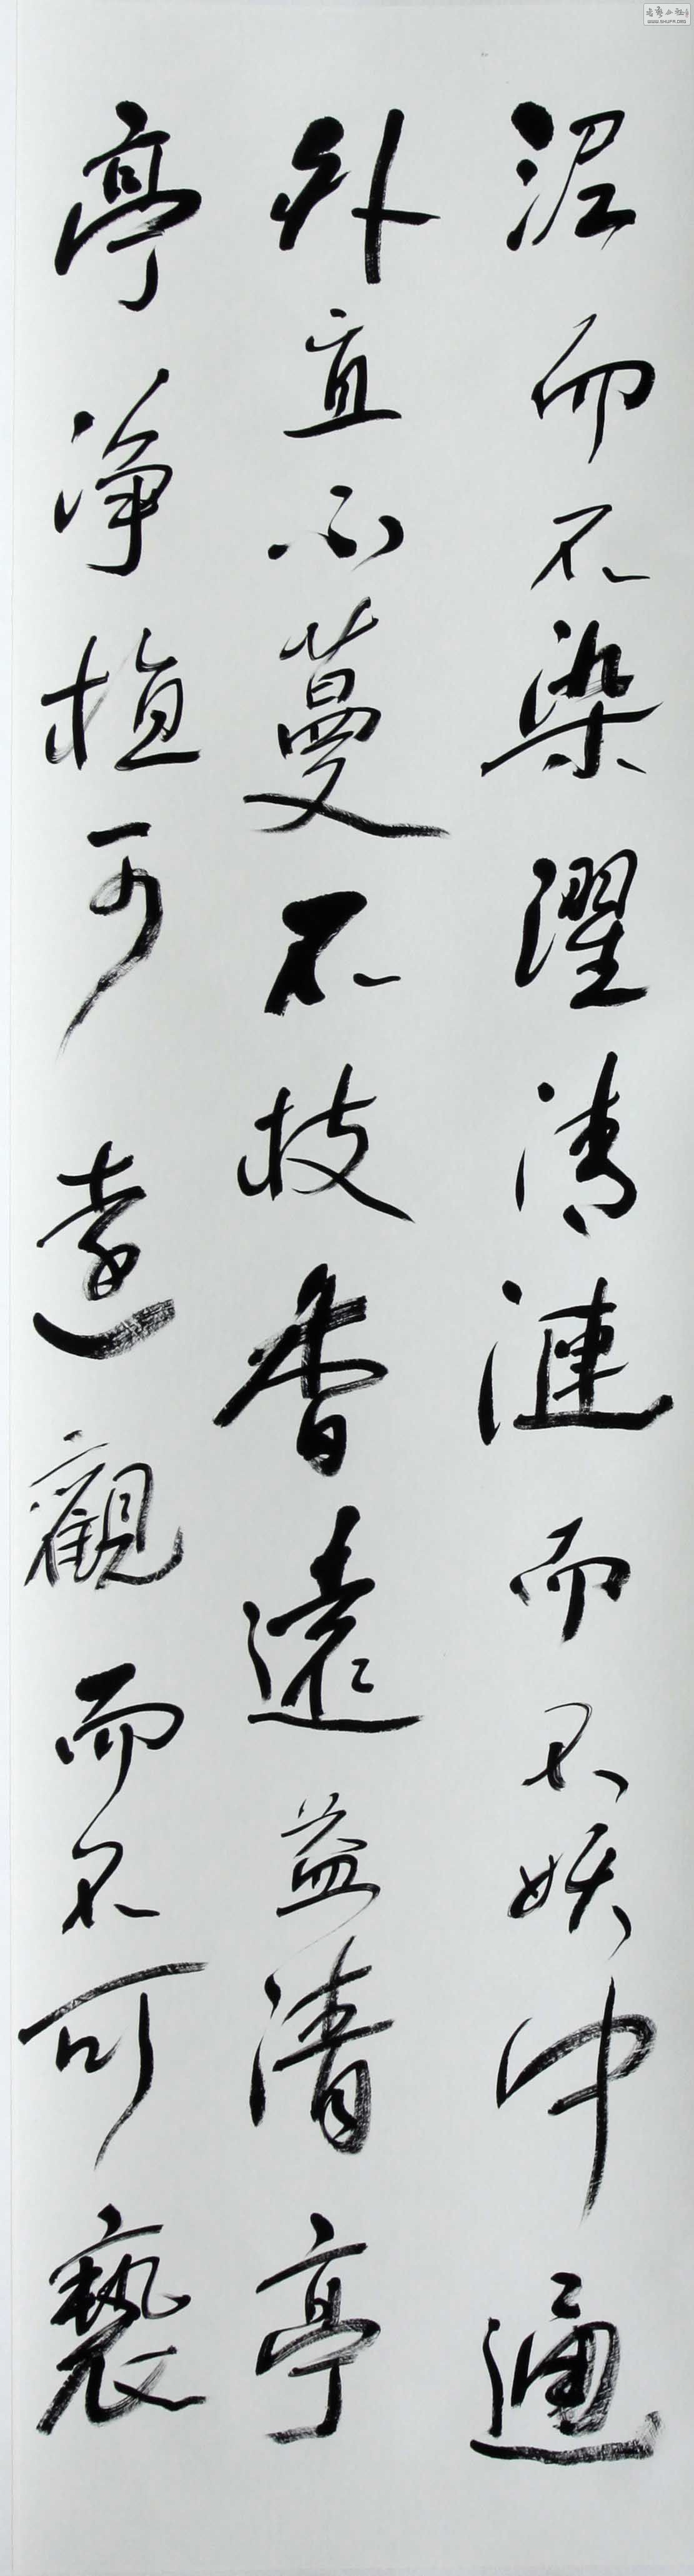 泥而不染濯清漣而不妖中通
外直不蔓不枝香遠益清亭
亭淨植可遠觀而不可褻
WWW.SHUFA.ORG